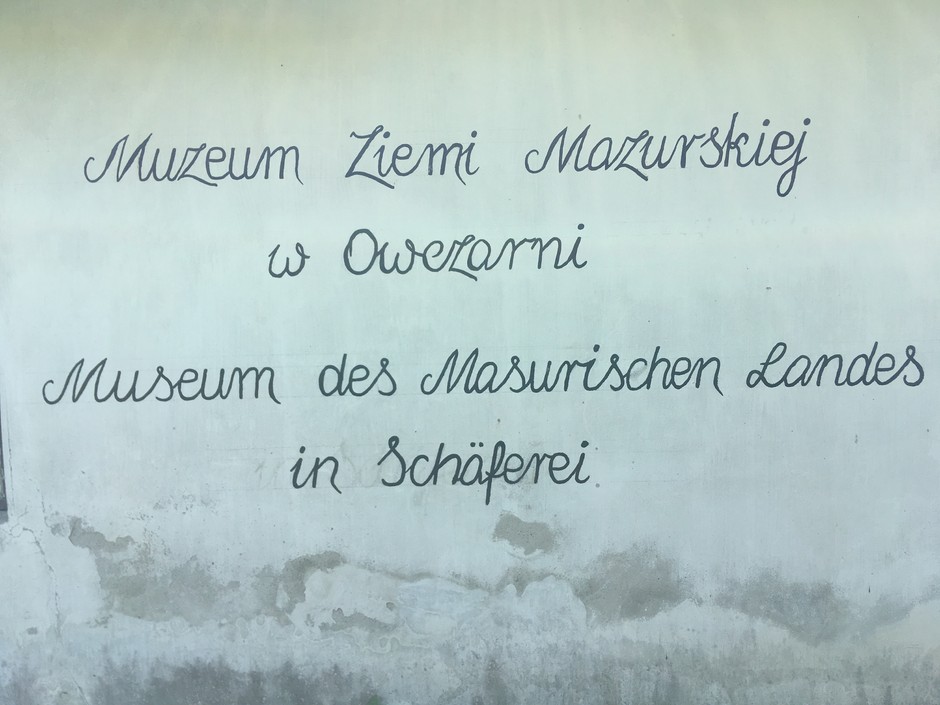 Muzeum Ziemi Mazurskiej
w Owczarni
Museum des Masurischen Landes
in Schäferei